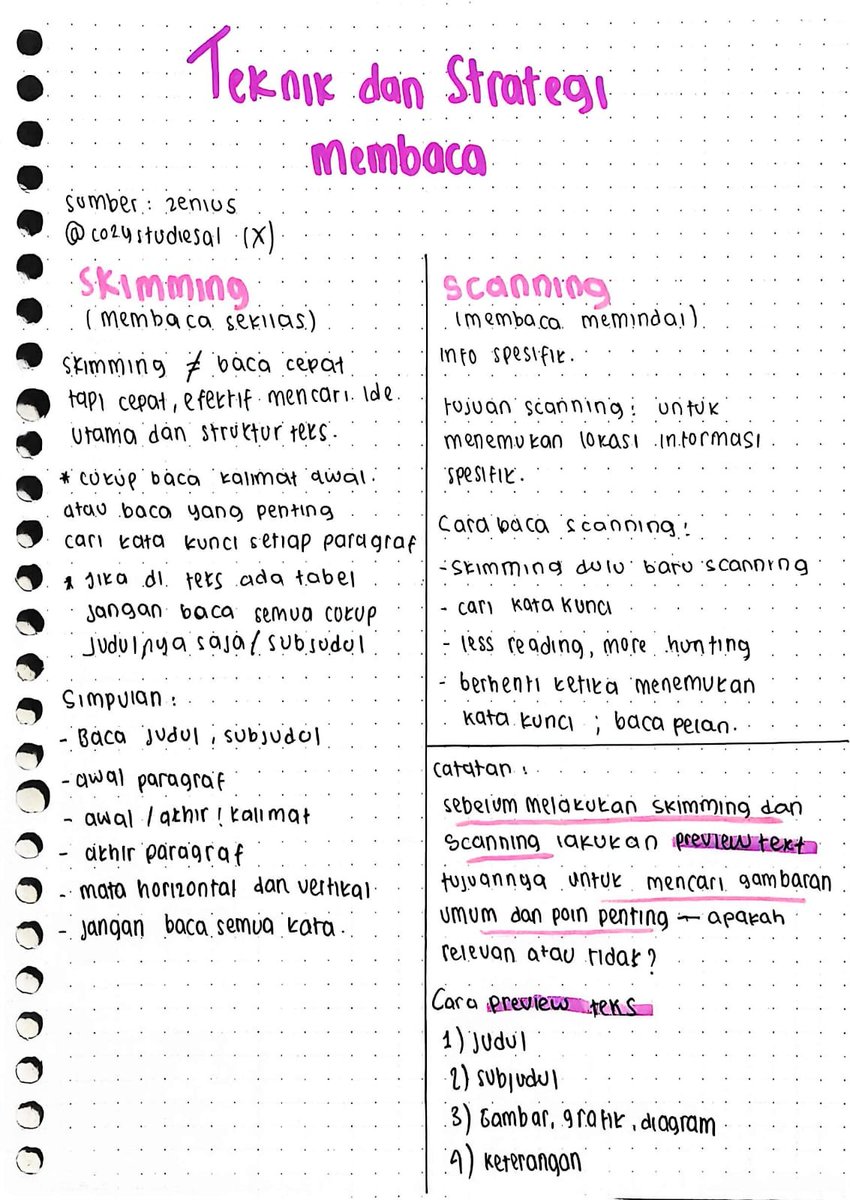 Teknik dan Strategi
membaca
sumber : zenius
@cozystudiesal (X)
skimming
(membaca sekilas)
skimming ≠ baca cepat
tapi cepat, efektif mencari ide
utama dan struktur teks.
* cukup baca kalimat awal.
atau baca yang penting
cari kata kunci setiap paragraf
* jika di teks ada tabel
jangan baca semua cukup
judulnya saja / subjudul
Simpulan :
- Baca judul, subjudul
- awal paragraf
- awal / akhir ! kalimat
- akhir paragraf
- mata horizontal dan vertikal
- jangan baca semua kata.
scanning
(membaca memindai)
info spesifik.
tujuan scanning : untuk
menemukan lokasi informasi
spesifik.
Cara baca scanning :
- skimming dulu baru scanning
- cari kata kunci
- less reading, more hunting
- berhenti ketika menemukan
kata kunci ; baca pelan.
catatan :
sebelum melakukan skimming dan
scanning lakukan preview text
tujuannya untuk mencari gambaran
umum dan poin penting — apakah
relevan atau tidak?
Cara preview teks
1) judul
2) subjudul
3) Gambar, grafik, diagram
4) keterangan